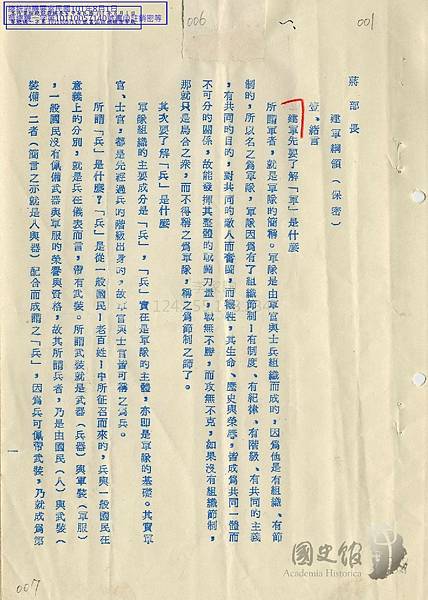 006
001
蔣部長
建軍綱領（保密）
壹、緒言
建軍先要了解「軍」是什麼
所謂軍者，就是軍隊的簡稱。軍隊是由軍官與士兵組織而成的，因為他是有組織、有節
制的，所以名之為軍隊，軍隊因為有了組織節制－有制度、有紀律、有階級、有共同的主義
，有共同的目的，對共同的敵人而奮鬪，而犧牲，其生命、歷史與榮辱，皆成為共同一體而
不可分的關係，故能發揮其整體的戰鬪力量，戰無不勝，而攻無不克，如果沒有組織節制，
那就只是烏合之衆，而不得稱之為軍隊，稱之為節制之師了。
其次要了解「兵」是什麼
軍隊組織的主要成分是「兵」，「兵」實在是軍隊的主體，亦即是軍隊的基礎。其實軍
官、士官，都是先經過兵的階級出身的，故軍官與士官皆可稱之為兵。
所謂「兵」是什麼？「兵」是從一般國民－老百姓－中所征召而來的，兵與一般國民在
意義上的分別，就是兵在儀表而言，帶有武裝。所謂武裝就是武器（兵器）與軍裝（軍服）
，一般國民沒有佩備武器與軍服的榮譽與資格，故其所謂兵者，乃是由國民（人）與武裝（
裝備）二者（簡言之亦就是人與器）配合而成謂之「兵」，因為兵可佩帶武裝，乃就成為第
一
007
國史館
Academia Historica